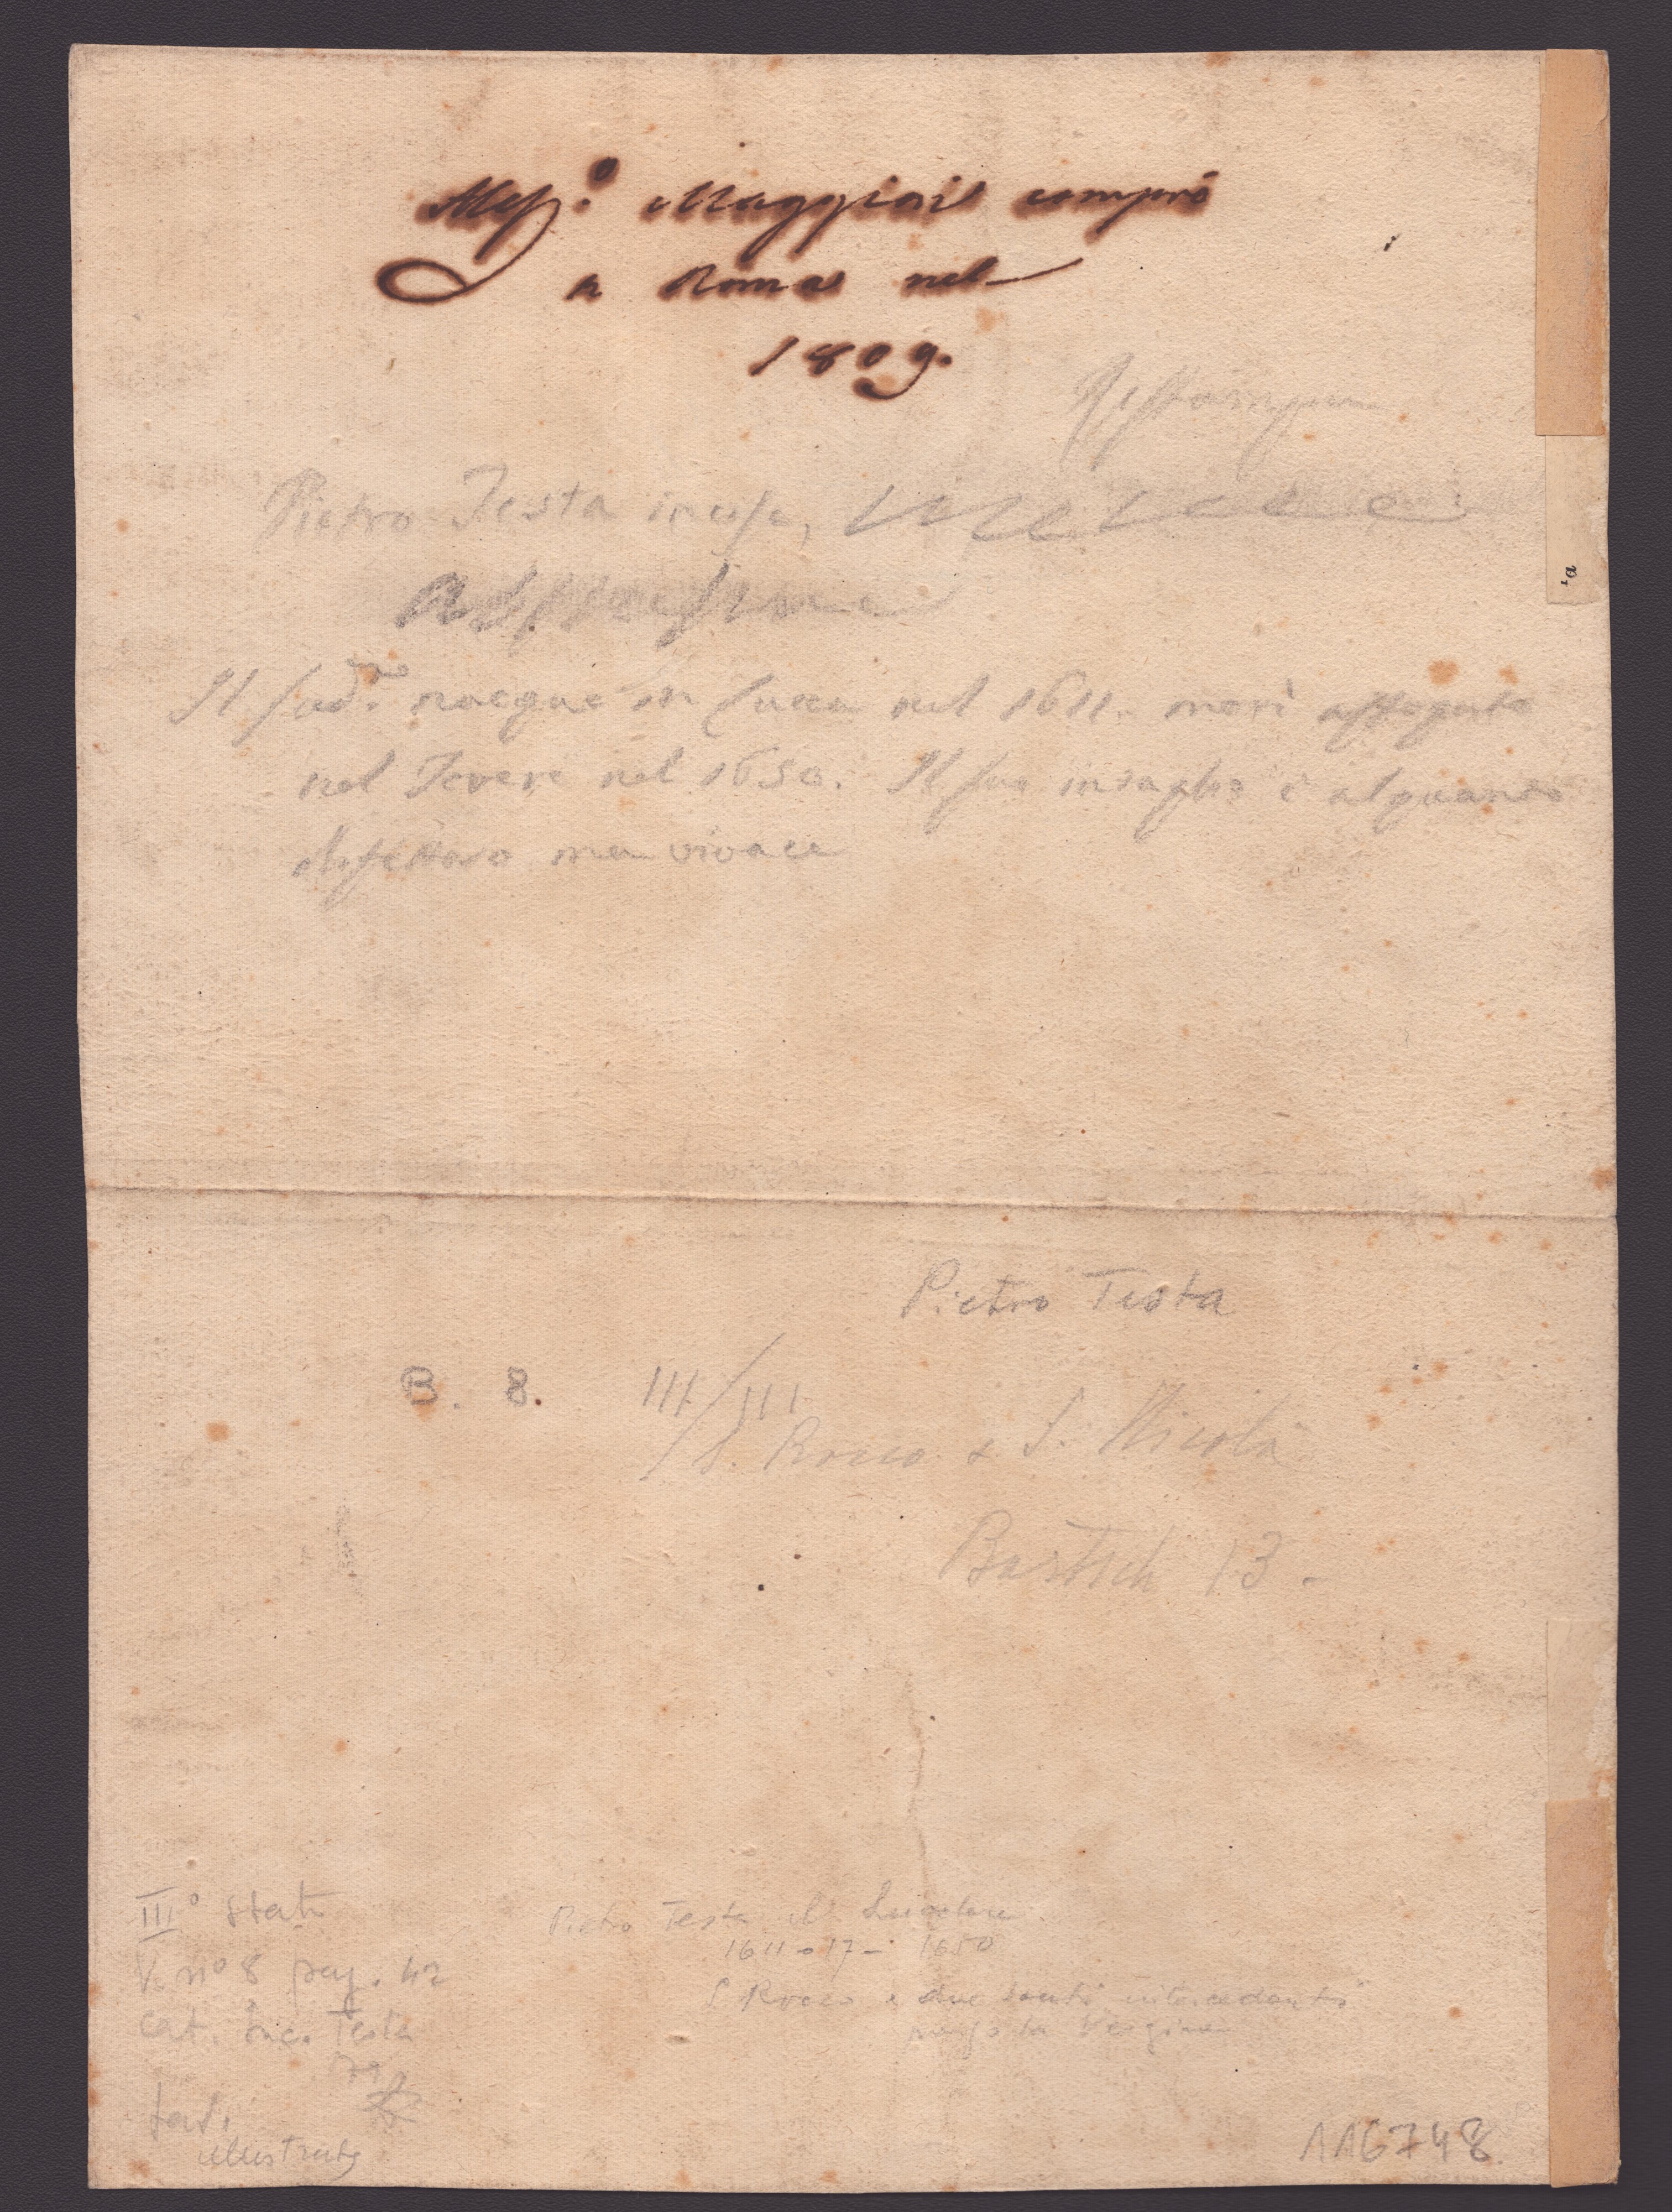 Aless.o Maggiori comprò
a Roma nel
1809.
Pietro Testa incise,
Il sud.o nacque in Lucca nel 1611. morì affogato
nel Tevere nel 1650. Il suo intaglio è alquanto
difettoso ma vivace
a
Pietro Testa
B. 8. III/III
S. Rocco e S. Nicola
Bartsch 13 -
III° stato
V. n° 8 pag. 42
cat. inc. Testa
illustrato
Pietro Testa il Lucchese
1611 o 17 - 1650
S. Rocco e due santi intercedenti
presso la Vergine
116748.